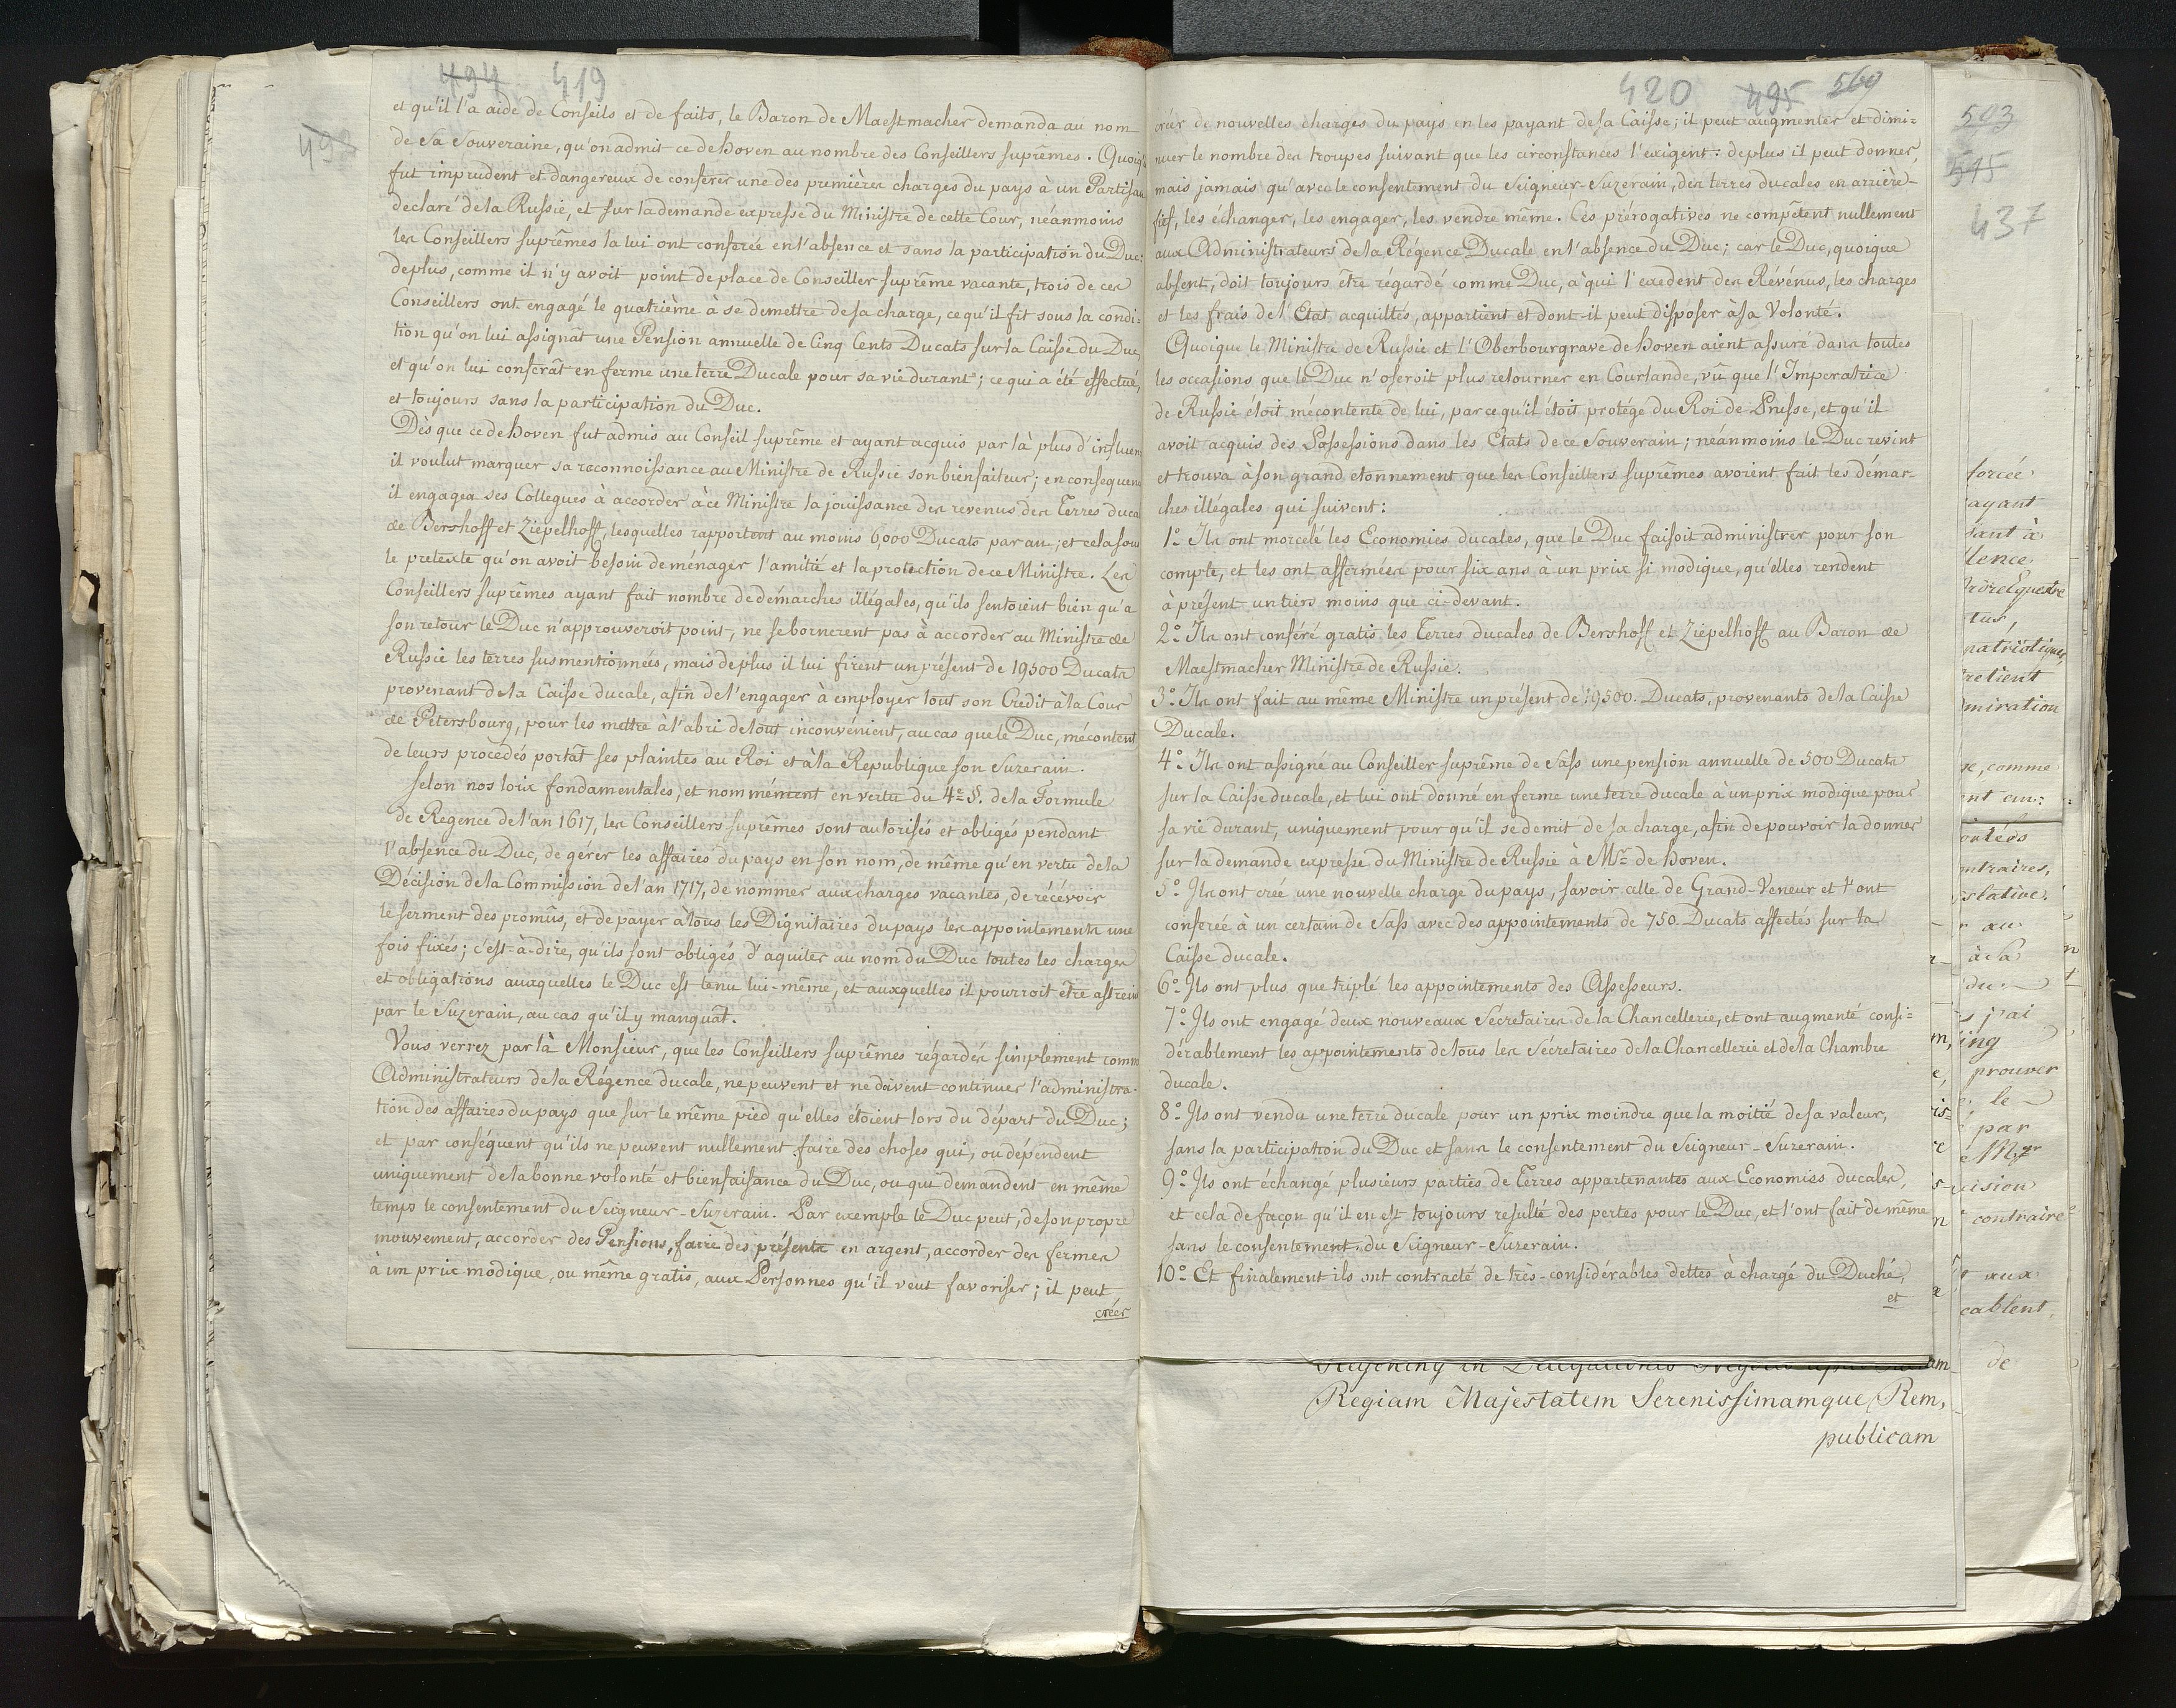 494 419
493
et qu'il l'a aidé de Conseils et de faits, le Baron de Maestmacher demanda au nom
de Sa Souveraine, qu'on admit ce de Hoven au nombre des Conseillers suprêmes. Quoiq
fut imprudent et dangereux de conferer une des premières charges du pays à un Partisan
declaré de la Russie, et sur la demande expresse du Ministre de cette Cour, néanmoins
les Conseillers suprêmes la lui ont conferée en l'absence et sans la participation du Duc:
de plus, comme il n'y avoit point de place de Conseiller suprême vacante, trois de ces
Conseillers ont engagé le quatrième à se demettre de sa charge, ce qu'il fit sous la condi=
tion qu'on lui assignât une Pension annuelle de Cinq Cents Ducats sur la Caisse du Duc,
et qu'on lui conferât en ferme une terre Ducale pour sa vie durant; ce qui a été effectué,
et toujours sans la participation du Duc.
Dès que ce de Hoven fut admis au Conseil suprême et ayant acquis par là plus d'influen
il voulut marquer sa reconnoissance au Ministre de Russie son bienfaiteur; en consequen
il engagea ses Collegues à accorder à ce Ministre la jouissance des revenus des Terres duca
de Bershoff et Ziepelhoff, lesquelles rapportent au moins 6,000 Ducats par an; et cela sou
le pretexte qu'on avoit besoin de ménager l'amitié et la protection de ce Ministre. Les
Conseillers suprêmes ayant fait nombre de démarches illégales, qu'ils sentoient bien qu'a
son retour le Duc n'approuveroit point, ne se bornerent pas à accorder au Ministre de
Russie les terres susmentionnées, mais de plus il lui firent un présent de 19500 Ducats
provenant de la Caisse ducale, afin de l'engager à employer tout son Credit à la Cour
de Petersbourg, pour les mettre à l'abri de tout inconvénient, au cas que le Duc, mécontent
de leurs procedés portât ses plaintes au Roi et à la Republique son Suzerain.
Selon nos loix fondamentales, et nommément en vertu du 4e §. de la Formule
de Regence de l'an 1617, les Conseillers suprêmes sont autorisés et obligés pendant
l'absence du Duc, de gérer les affaires du pays en son nom, de même qu'en vertu de la
Décision de la Commission de l'an 1717, de nommer aux charges vacantes, de récévoir
le serment des promûs, et de payer a tous les Dignitaires du pays les appointements une
fois fixés; c'est-à-dire, qu'ils sont obligés d'aquiter au nom du Duc toutes les charges
et obligations auxquelles le Duc est tenu lui-même, et auxquelles il pourroit être astrein
par le Suzerain, au cas qu'il y manquât.
Vous verrez par là Monsieur, que les Conseillers suprêmes régardés simplement comm
Administrateurs de la Régence ducale, ne peuvent et ne doivent continuer l'administra-
tion des affaires du pays que sur le même pied qu'elles étoient lors du départ du Duc;
et par conséquent qu'ils ne peuvent nullement faire des choses qui, ou dépendent
uniquement de la bonne volonté et bienfaisance du Duc, ou qui demandent en même
temps le consentement du Seigneur-Suzerain. Par exemple le Duc peut, de son propre
mouvement, accorder des Pensions, faire des présents en argent, accorder des fermes
à un prix modique, ou même gratis, aux Personnes qu'il veut favoriser; il peut
créer
420 495 569
créer de nouvelles charges du pays en les payant de sa Caisse; il peut augmenter et dimi=
nuer le nombre des troupes suivant que les circonstances l'exigent: de plus il peut donner,
mais jamais qu'avec le consentement du Seigneur-Suzerain, des terres ducales en arrière-
fief, les échanger, les engager, les vendre même. Ces prérogatives ne compètent nullement
aux Administrateurs de la Régence Ducale en l'absence du Duc; car le Duc, quoique
absent, doit toujours être régardé comme Duc, à qui l'exedent des Révénus, les charges
et les frais de l'Etat acquittés, appartient et dont-il peut disposer à sa Volonté.
Quoique le Ministre de Russie et l'Oberbourgrave de Hoven aient assuré dans toutes
les occasions que le Duc n'oseroit plus retourner en Courlande, vû que l'Imperatrice
de Russie étoit mécontente de lui, parce qu'il étoit protégé du Roi de Prusse, et qu'il
avoit acquis des Possessions dans les Etats de ce Souverain; néanmoins le Duc revint
et trouva à son grand etonnement que les Conseillers suprêmes avoient fait les démar-
ches illégales qui suivent:
1o Ils ont morcelé les Economies ducales, que le Duc faisoit administrer pour son
compte, et les ont affermées pour six ans à un prix si modique, qu'elles rendent
à présent un tiers moins que ci-devant.
2o Ils ont conféré gratis les Terres ducales de Bershoff et Ziepelhoff au Baron de
Maestmacher Ministre de Russie.
3o Ils ont fait au même Ministre un présent de 19500. Ducats, provenants de la Caisse
Ducale.
4o Ils ont assigné au Conseiller suprême de Sass une pension annuelle de 500 Ducats
sur la Caisse ducale, et lui ont donné en ferme une terre ducale à un prix modique pour
sa vie durant, uniquement pour qu'il se demit de sa charge, afin de pouvoir la donner
sur la demande expresse du Ministre de Russie à Mr de Hoven.
5o Ils ont créé une nouvelle charge du pays, savoir celle de Grand-Veneur et l'ont
conferée à un certain de Sass avec des appointements de 750. Ducats affectés sur la
Caisse ducale.
6o Ils ont plus que triplé les appointements des Assesseurs.
7o Ils ont engagé deux nouveaux Sécretaires de la Chancellerie, et ont augmenté consi=
dérablement les appointements de tous les Sécretaires de la Chancellerie et de la Chambre
ducale.
8o Ils ont vendu une terre ducale pour un prix moindre que la moitié de sa valeur,
sans la participation du Duc et sans le consentement du Seigneur-Suzerain.
9o Ils ont échangé plusieurs parties de Terres appartenantes aux Economies ducales,
et cela de façon qu'il en est toujours resulté des pertes pour le Duc, et l'ont fait de même
sans le consentement du Seigneur-Suzerain.
10o Et finalement ils ont contracté de très-considérables dettes à chargé du Duché,
et
Regiam Majestatem Serenissimamque Rem,
publicam
503
515
437
forcée
ayant
sant à
lence
Ordre Equestre
tus,
patriotiques
retient
miration
ne, comme
ent em:
ontraires,
islative.
r au
à Sa
du
s j'ai
ing
prouver
le
par
Mgr
vision
contraire
aux
cablent,
de